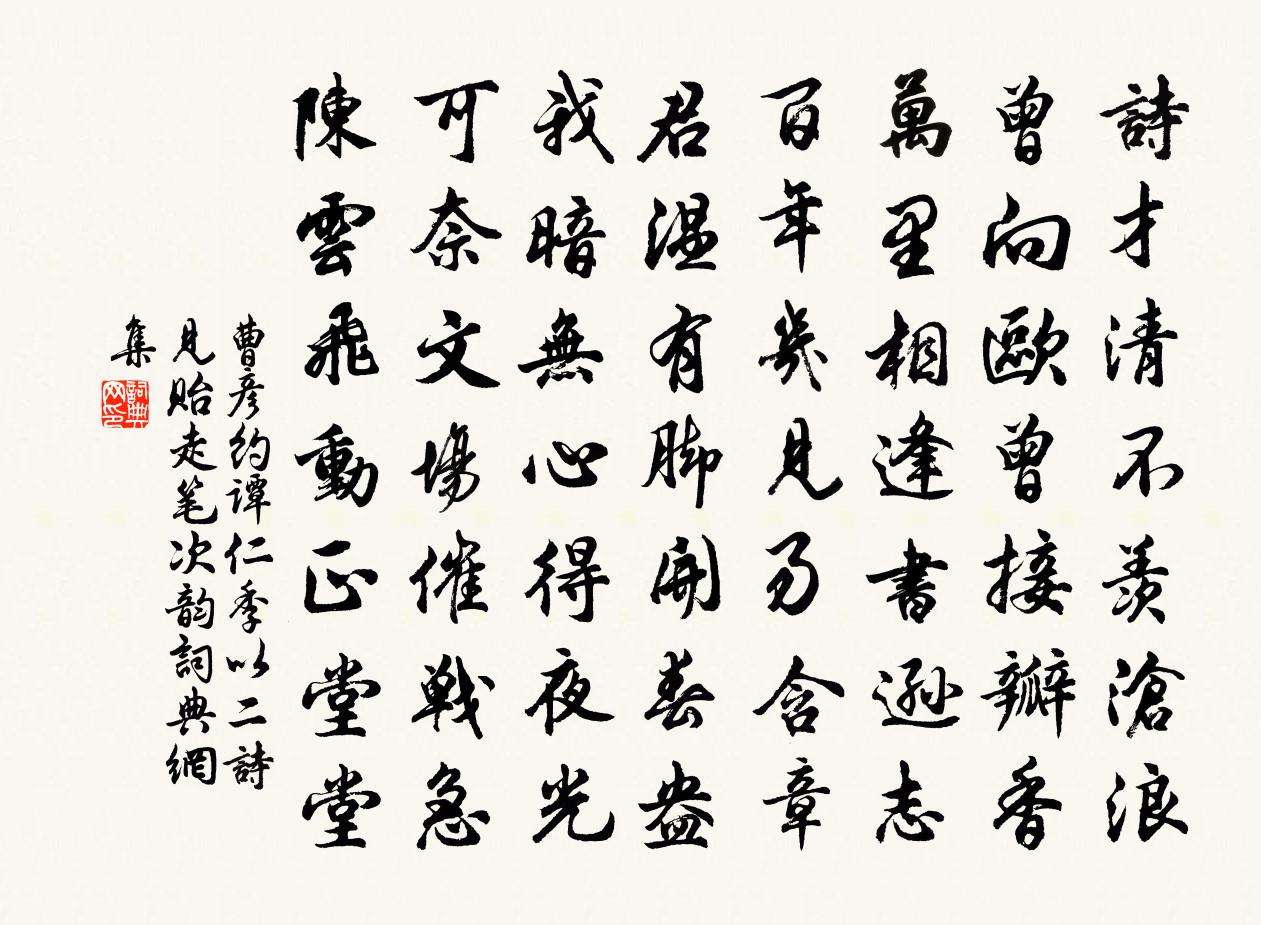 詩才清不羨滄浪
曾向歐曾接瓣香
萬里相逢書遜志
百年幾見易含章
君温有脚開春盎
我暗無心得夜光
可奈文場催戦急
陳雲飛動正堂堂
曹彦约谭仁季以二詩
見贻走笔次韵詞典網
集
詞典网印